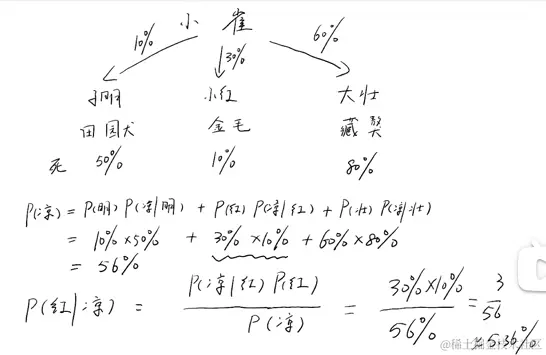 小 雀
10% 30% 60%
小明 小红 大壮
田园犬 金毛 藏獒
死 50% 10% 80%
P(凉) = P(明) P(凉|明) + P(红) P(凉|红) + P(壮) P(凉|壮)
= 10% × 50% + 30% × 10% + 60% × 80%
= 56%
P(红|凉) = P(凉|红) P(红) / P(凉) = 30% × 10% / 56% = 3/56
≈ 5.36%